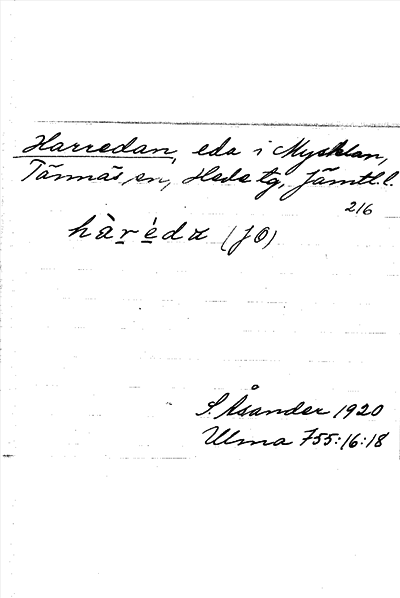 Harredan, eda i Mysklan,
Tännäs sn, Heds tg, Jämtl. l.
216
hàréda (JO)
S. Åsander 1920
Ulma 755:16:18